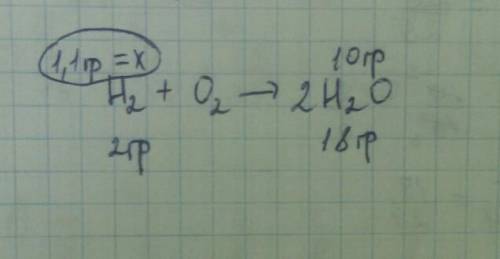 1,1гр = х 10гр
H₂ + O₂ → 2H₂O
2гр 18гр